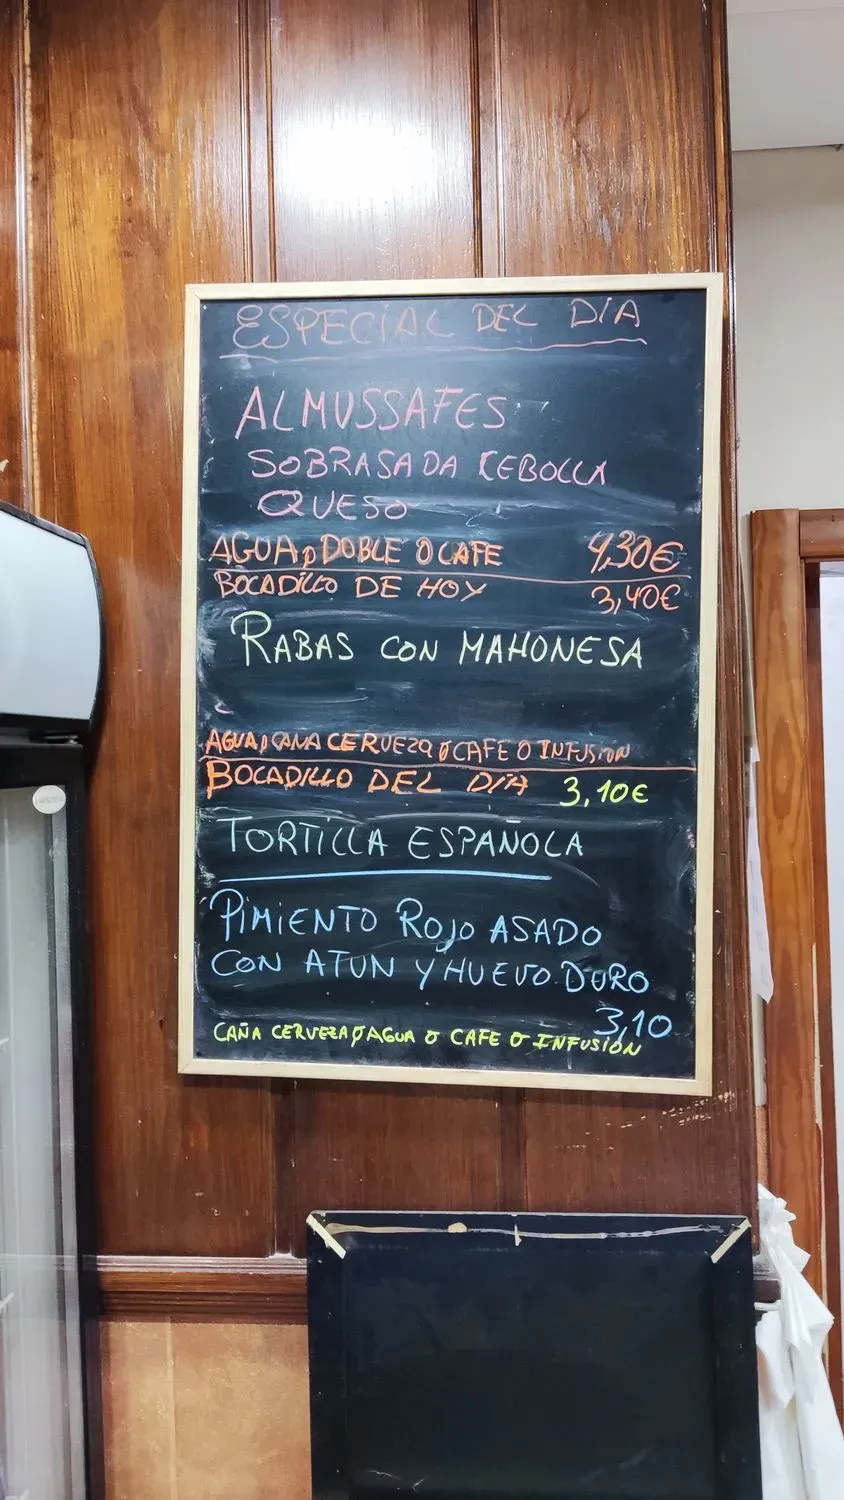 ESPECIAL DEL DÍA
ALMUSSAFES
SOBRASADA CEBOLLA
QUESO
AGUA, DOBLE O CAFE 4,30€
BOCADILLO DE HOY 3,40€
RABAS CON MAHONESA
AGUA, CAÑA CERVEZA O CAFE O INFUSION
BOCADILLO DEL DÍA 3,10€
TORTILLA ESPAÑOLA
PIMIENTO ROJO ASADO
CON ATUN Y HUEVO DURO
3,10
CAÑA CERVEZA O AGUA O CAFE O INFUSIÓN